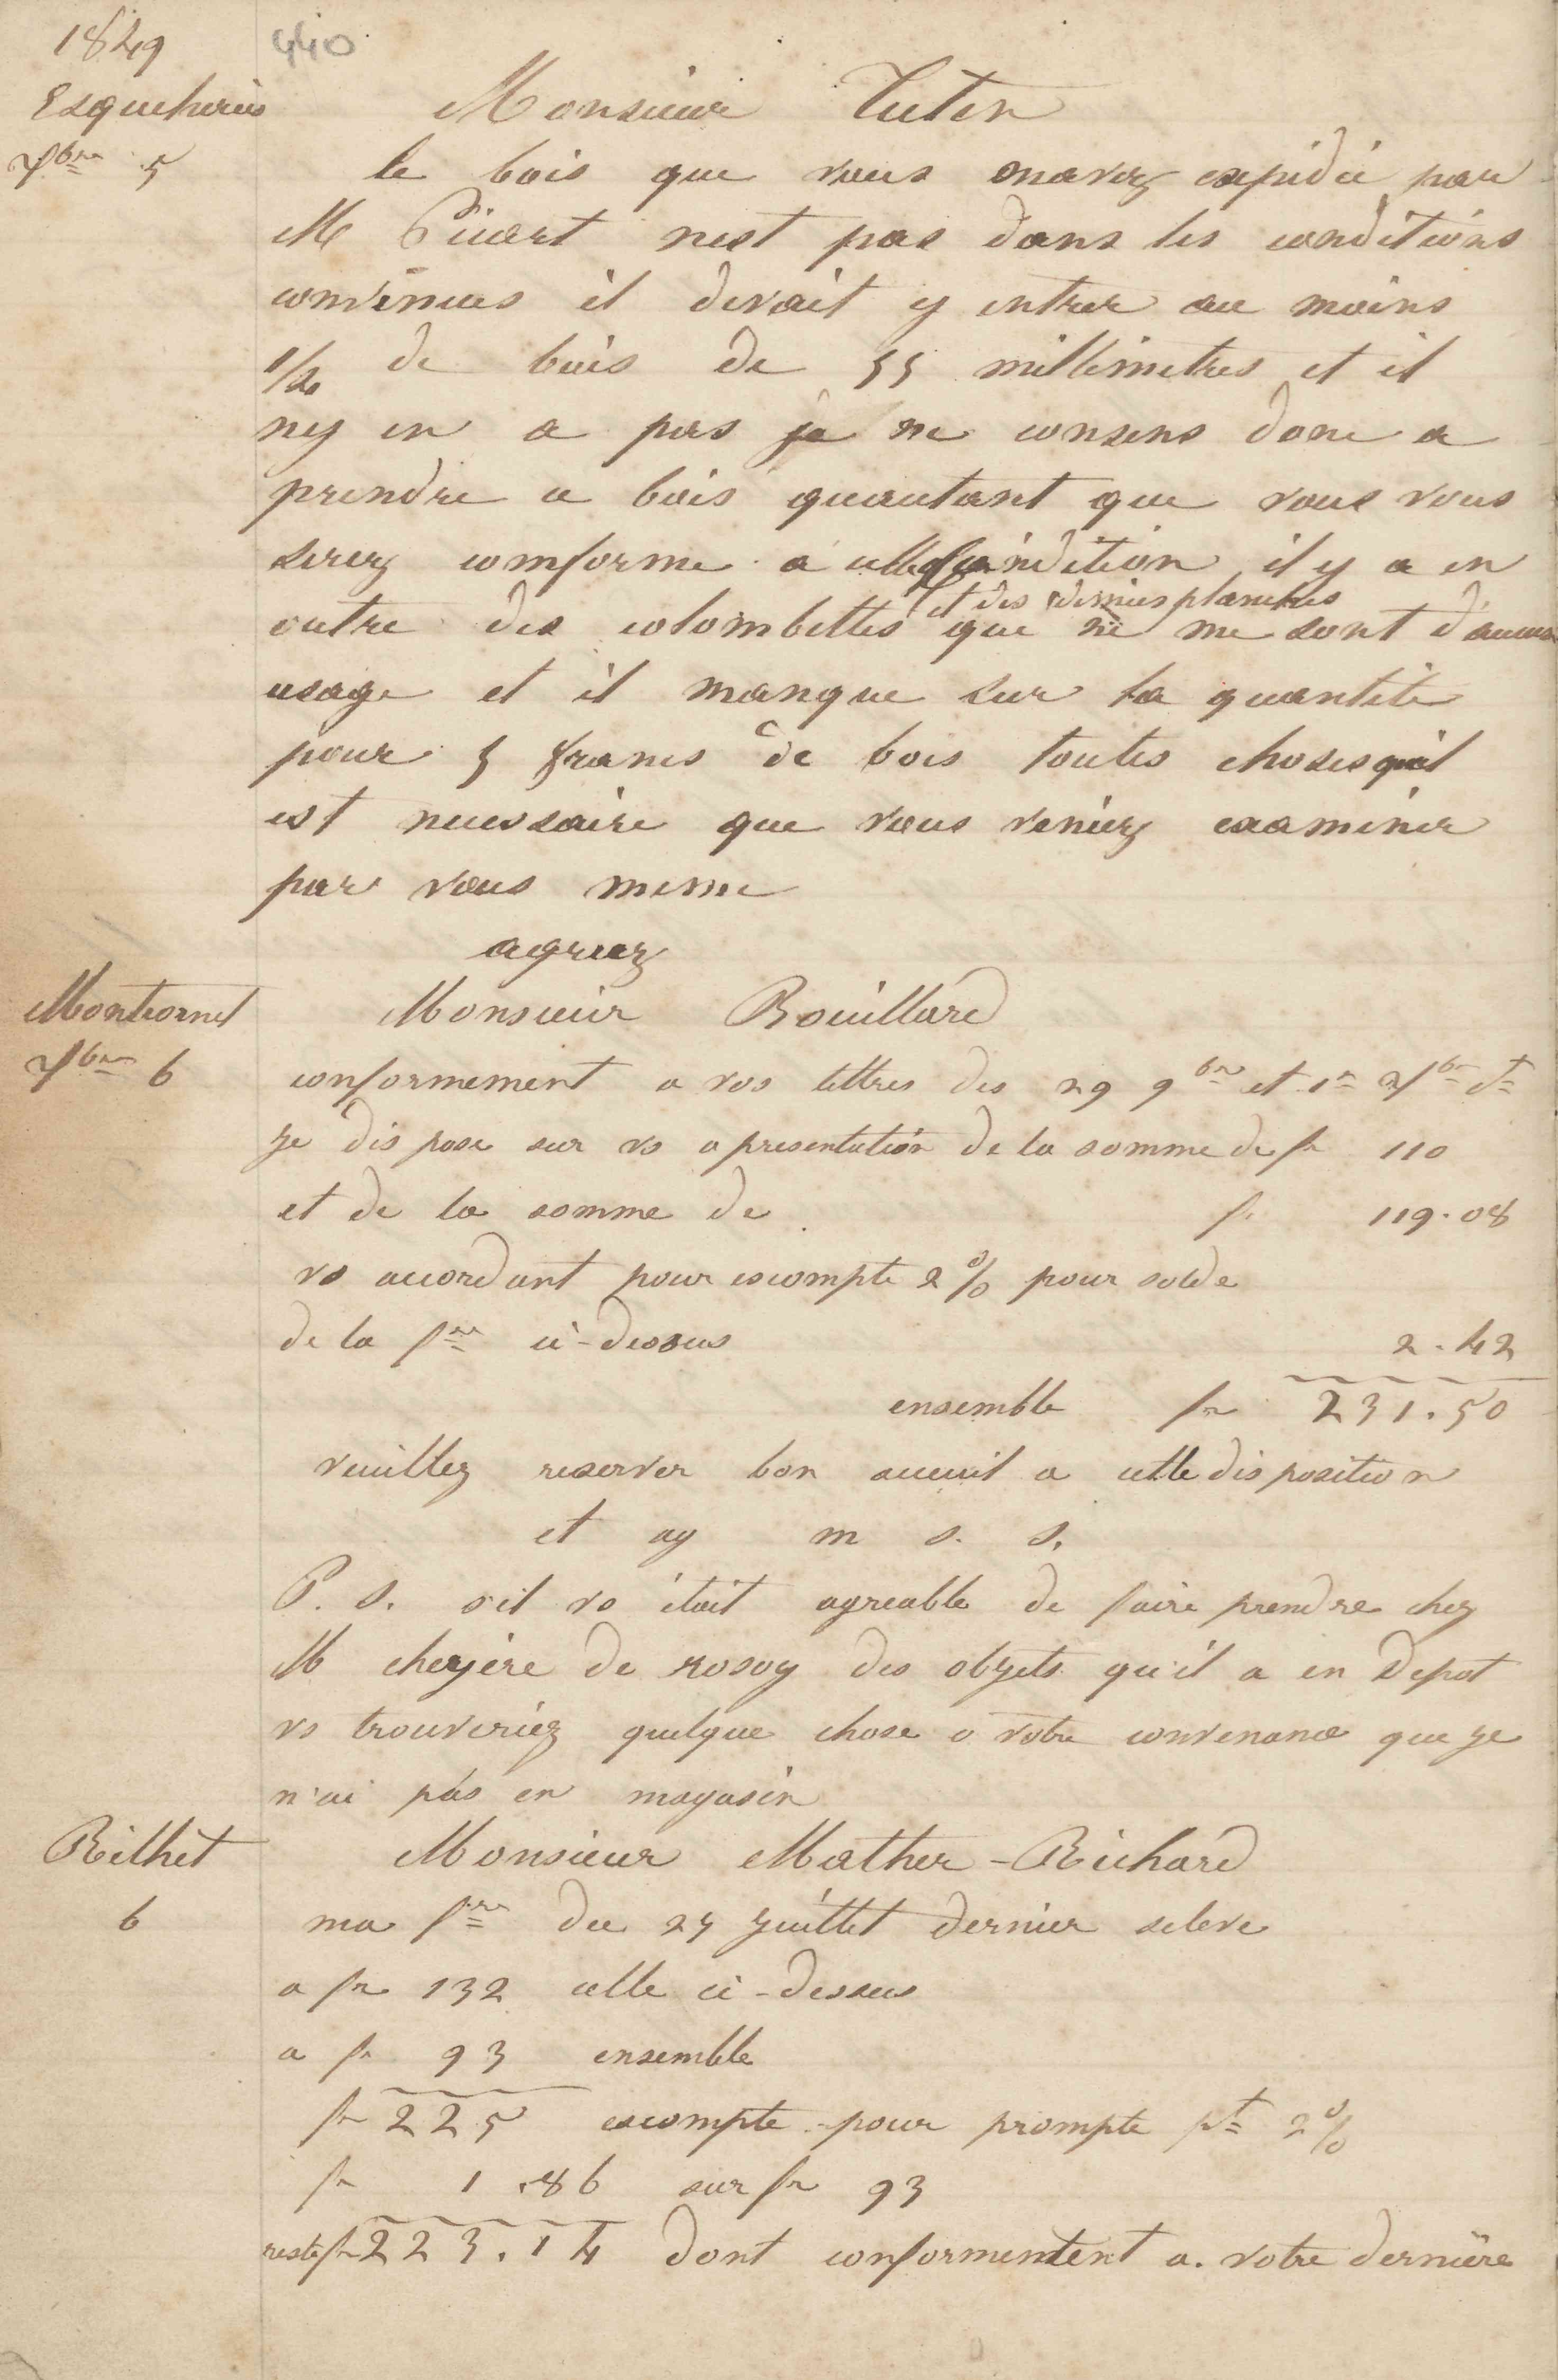 1849
440
Esqueheries
Xbre 5
Monsieur Tuten
le bois que vous mavez expidié par
M Picart nest pas dans les conditions
convenues il devait y entrer au moins
1/2 de bois de 55 millimetres et il
ny en a pas je ne consens donc a
prendre ce bois quautant que vous vous
serez comforme a cette condition il y a en
et des demies planches
outre des colombettes que ne me sont d'aucun
usage et il manque sur la quantité
pour 5 francs de bois toutes choses qu'il
est necessaire que vous veniez examiner
par vous meme
agreez
Montcornet
Xbre 6
Monsieur Bouillard
conformement a vos lettres des 29 9bre et 1er Xbre ct
je dispose sur vs a presentation de la somme de fr 110
et de la somme de fr 119.08
vs accordant pour escompte 2% pour solde
de la fre ci-dessus 2.42
ensemble fr 231.50
veuillez reserver bon accueil a cette disposition
et ag m s. s.
P. S. s'il vs était agreable de faire prendre chez
M cheyère de rosoy des objets qu'il a en Depot
vs trouveriez quelque chose a votre convenance que je
n'ai pas en magasin
Rilhet
6
Monsieur Mather-Richard
ma fre du 25 juillet dernier seleve
a fr 132 celle ci-dessus
a fr 93 ensemble
fr 225 escompte pour prompte pt 2%
fr 1.86 sur fr 93
reste fr 223.14 dont conformentent a. votre dernière